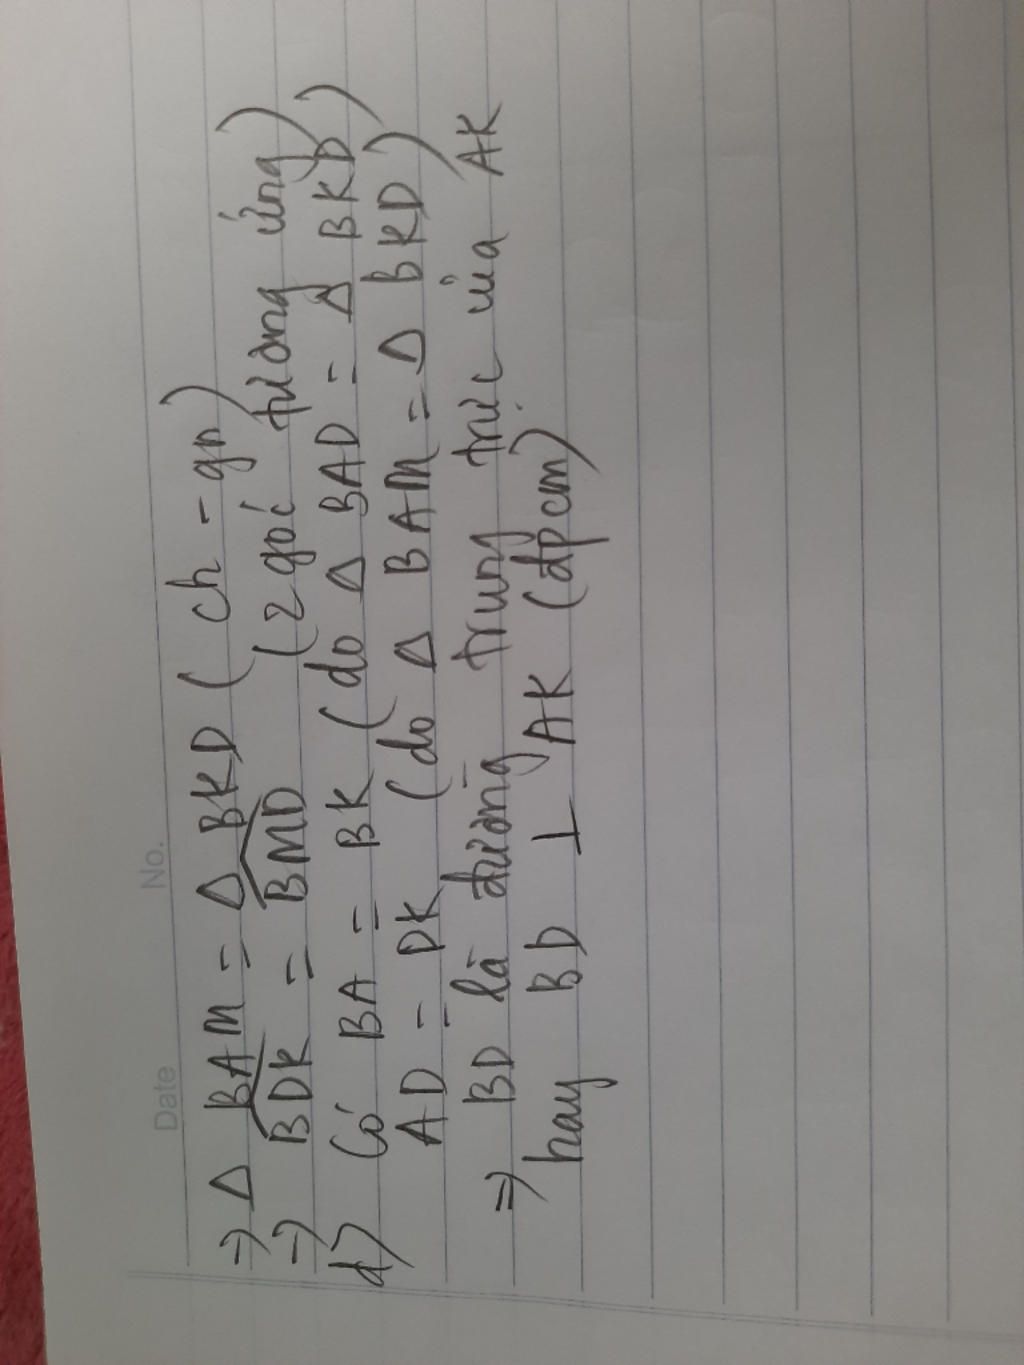 Date No.
=> Δ BAM = Δ BKD ( ch - gn )
=> BDK = BMD ( 2 góc tương ứng )
d) Có BA = BK ( do Δ BAD = Δ BKD )
AD = DK ( do Δ BAM = Δ BKD )
=> BD là đường trung trực của AK
hay BD ⊥ AK (đpcm)